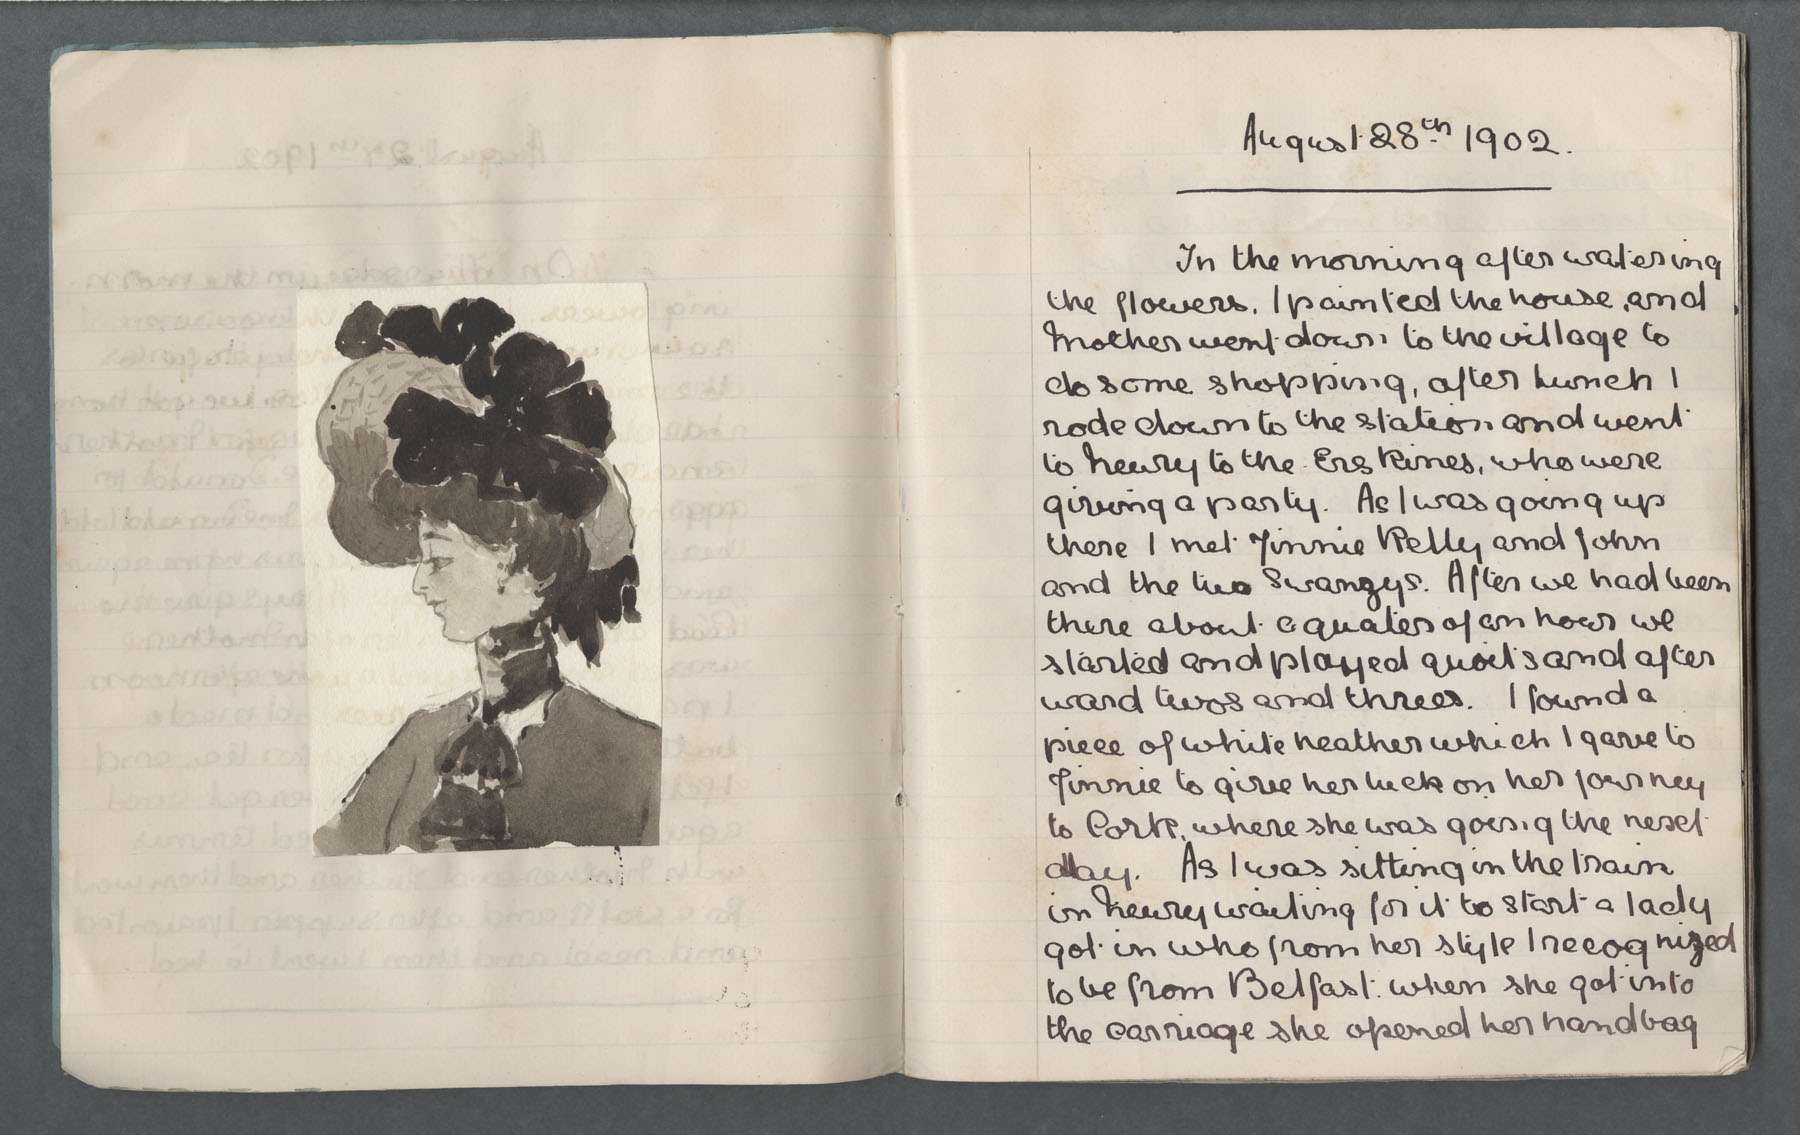 August 28th 1902.
In the morning after watering
the flowers, I painted the house, and
Mother went down to the village to
do some shopping, after lunch I
rode down to the station and went
to Newry to the Erskines, who were
giving a party. As I was going up
there I met Jinnie Kelly and John
and the two Swanzys. After we had been
there about a quater of an hour we
started and played quoits and after
ward twos and threes. I found a
piece of white heather which I gave to
Jinnie to give her luck on her journey
to Cork, where she was going the next
day. As I was sitting in the train
in Newry waiting for it to start a lady
got in who from her style I recognized
to be from Belfast. when she got into
the carriage she opened her handbag